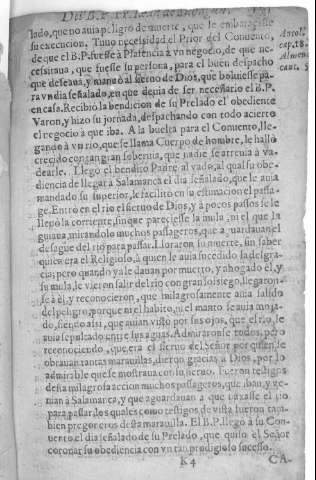 lado, que no auia peligro de muerte, que le embaraçasse
su execucion. Tuuo necessidad el Prior del Conuento,
de que el B.P. fuesse à Plasencia à vn negocio, de que ne-
cessitaua, que fuesse su persona, para el buen despacho
que deseaua, y mandò al sieruo de Dios, que boluiesse pa-
ra vn dia señalado, en que deuia de ser necessario el B.P.
en casa. Recibiò la bendicion de su Prelado el obediente
Varon, y hizo su jornada, despachando con todo acierto
el negocio à que iba. A la buelta para el Conuento, lle-
gando à vn rio, que se llama Cuerpo de hombre, le hallò
crecido con tan gran soberuia, que nadie se atreuia à va-
dearle. Llegò el bendito Padre al vado, al qual su obe-
diencia de llegar à Salamanca el dia señalado, que le auia
mandado su superior, le facilitò en su estimacion el passa-
ge. Entrò en el rio el sieruo de Dios, y à pocos passos se le
lleuò la corriente, sin que pareciesse la mula, ni el que la
guiaua, mirandolo muchos passageros, que aguardauan el
desague del rio para passar. Lloraron su muerte, sin saber
quien era el Religioso, à quien le auia sucedido la desgra-
cia; pero quando ya le dauan por muerto, y ahogado el, y
su mula, le vieron salir del rio con gran sossiego, llegaron-
se à èl, y reconocieron, que milagrosamente auia salido
del peligro, porque ni el habito, ni el manto se auia moja-
do, siendo assi, que auian visto por sus ojos, que el rio, le
auia sepultado entre sus aguas. Admiraronse todos, pero
reconociendo, que era el sieruo del Señor por quien se
obrauan tantas marauillas, dieron gracias à Dios, por lo
admirable que se mostraua con su sieruo. Fueron testigos
desta milagrosa accion muchos passageros, que iban, y ve-
nian à Salamanca, y que aguardauan à que baxasse el rio
para passar, los quales como testigos de vista fueron tam-
bien pregoneros desta marauilla. El B.P. llegò à su Con-
uento el dia señalado de su Prelado, que quiso el Señor
coronar su obediencia con vn tan prodigioso sucesso.
K4 CA-
cap. 18.